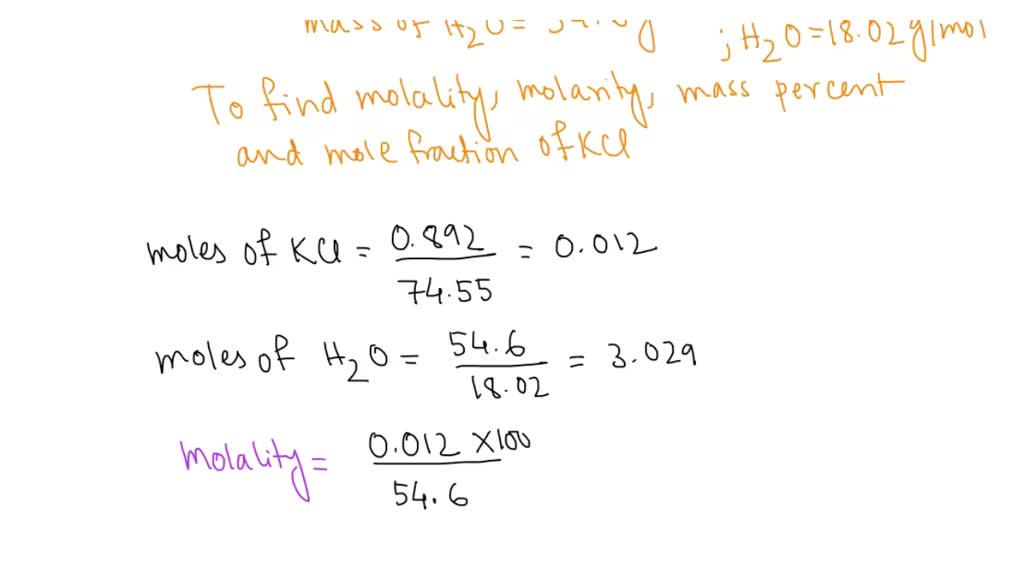 mass of H2O = 54.6g ; H2O = 18.02 g/mol
To find molality, molarity, mass percent
and mole fraction of KCl
moles of KCl = 0.892 / 74.55 = 0.012
moles of H2O = 54.6 / 18.02 = 3.029
Molality = 0.012 × 100 / 54.6